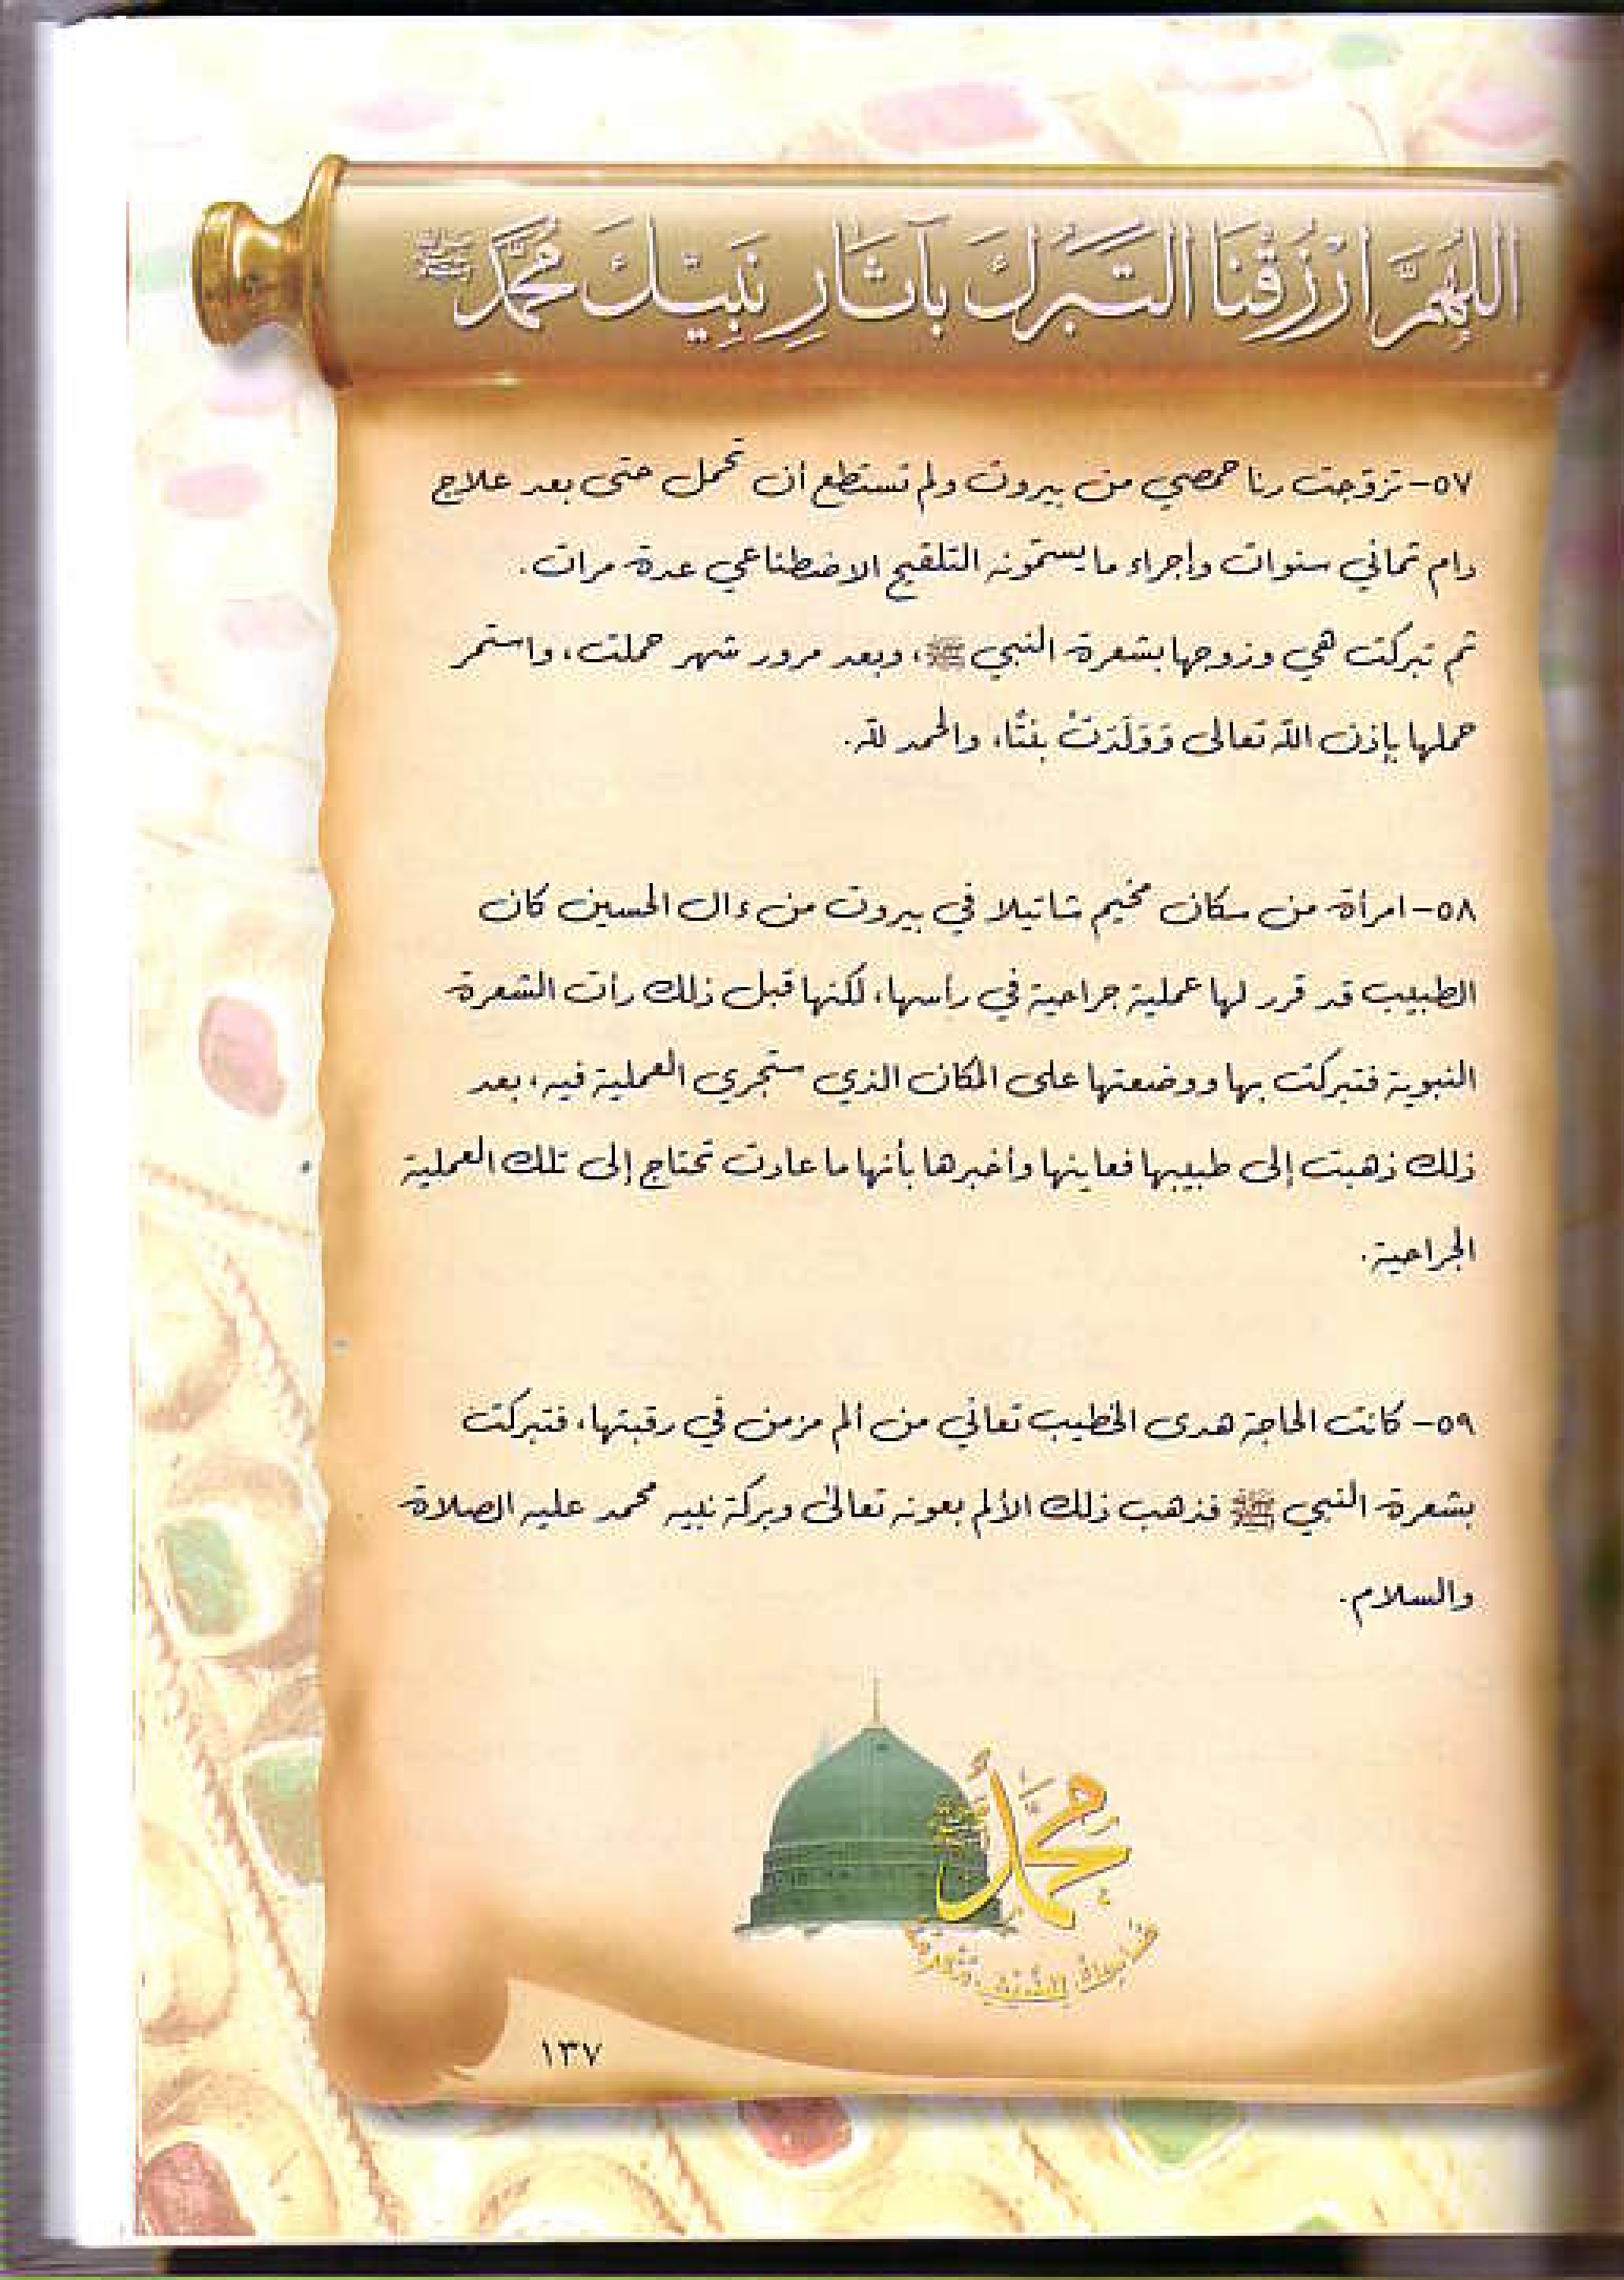 اللهُمَّ ارْزُقْنَا التَّبَرُّكَ بِآثَارِ نَبِيِّكَ مُحَمَّدٍ ﷺ
٥٧- تزوّجت رنا حمصي من بيروت ولم تستطع أن تحمل حتى بعد علاج
دام ثماني سنوات وإجراء ما يسمّونه التلقيح الاصطناعي عدة مرات.
ثم تبركت هي وزوجها بشعرة النبي ﷺ، وبعد مرور شهر حملت، واستمر
حملها بإذن الله تعالى وَوَلَدَتْ بنتًا، والحمد لله.
٥٨- امرأة من سكان مخيم شاتيلا في بيروت من ءال الحسين كان
الطبيب قد قرر لها عملية جراحية في رأسها، لكنها قبل ذلك رأت الشعرة
النبوية فتبركت بها ووضعتها على المكان الذي ستجري العملية فيه، بعد
ذلك ذهبت إلى طبيبها فعاينها وأخبرها بأنها ما عادت تحتاج إلى تلك العملية
الجراحية.
٥٩- كانت الحاجة هدى الخطيب تعاني من ألم مزمن في رقبتها، فتبركت
بشعرة النبي ﷺ فذهب ذلك الألم بعونه تعالى وبركة نبيه محمد عليه الصلاة
والسلام.
مُحَمَّد
١٣٧